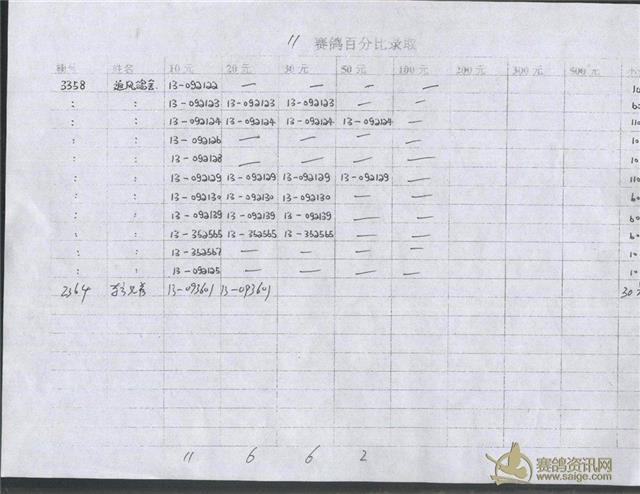 11 赛鸽百分比录取
棚号 姓名 10元 20元 30元 50元 100元 200元 300元 500元
3358 追风鸽舍 13-092122 — — — —
: : 13-092123 13-092123 13-092123 — —
: : 13-092124 13-092124 13-092124 13-092124 —
: : 13-092126 — — — —
: : 13-092128 — — — —
: : 13-092129 13-092129 13-092129 13-092129 —
: : 13-092130 13-092130 13-092130 — —
: : 13-092139 13-092139 13-092139 — —
: : 13-352565 13-352565 13-352565 — —
: : 13-352567 — — — —
: : 13-092125 — — — —
2364 13-093601 13-093601 30
11 6 6 2
赛鸽资讯网
www.saige.com